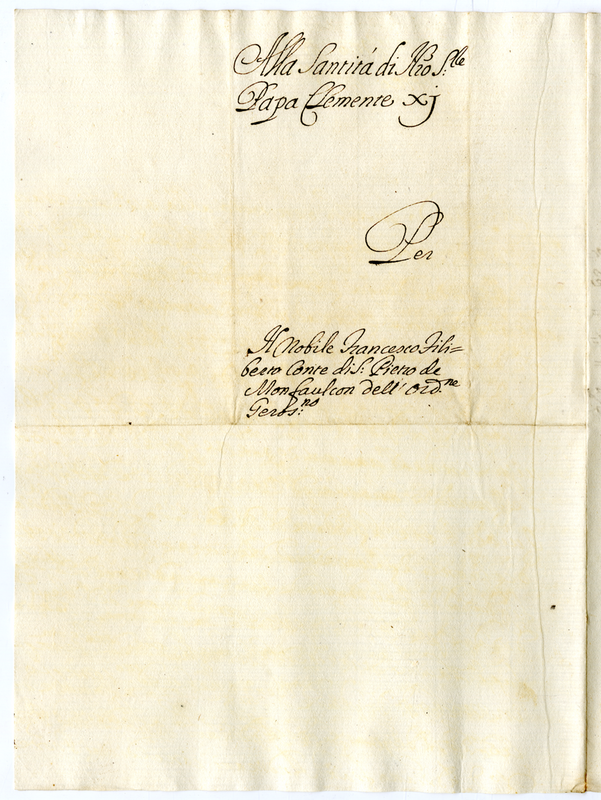 Alla Santità di Nro S.re
Papa Clemente XJ
Per
Il Nobile Francesco Fili=
berto Conte di S: Pietro de
Monfaulcon dell' Ord.ne
Geros:no